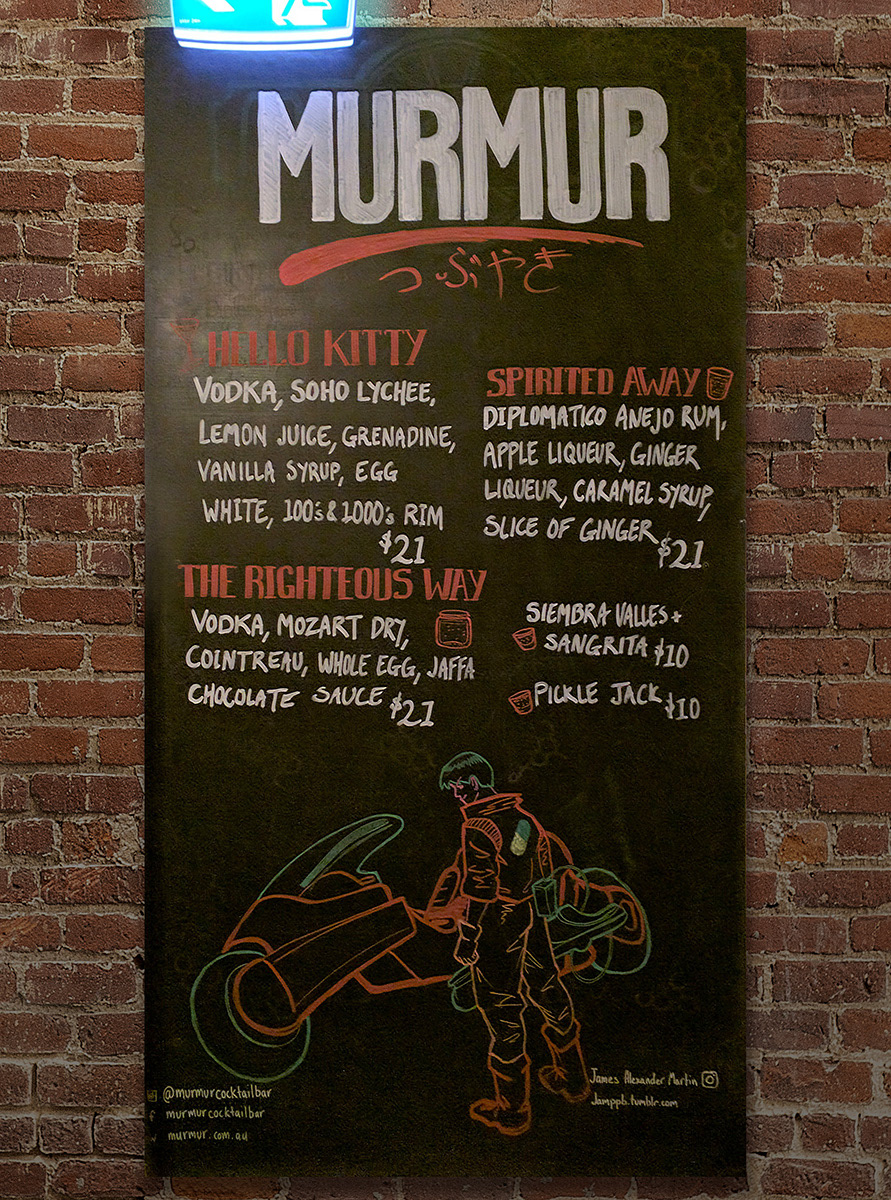 MURMUR
つぶやき
HELLO KITTY
VODKA, SOHO LYCHEE,
LEMON JUICE, GRENADINE,
VANILLA SYRUP, EGG
WHITE, 100's & 1000's RIM
$21
SPIRITED AWAY
DIPLOMATICO ANEJO RUM,
APPLE LIQUEUR, GINGER
LIQUEUR, CARAMEL SYRUP,
SLICE OF GINGER
$21
THE RIGHTEOUS WAY
VODKA, MOZART DRY,
COINTREAU, WHOLE EGG, JAFFA
CHOCOLATE SAUCE $21
SIEMBRA VALLES +
SANGRITA $10
PICKLE JACK $10
@murmurcocktailbar
f murmurcocktailbar
murmur.com.au
James Alexander Martin
Jamppb.tumblr.com